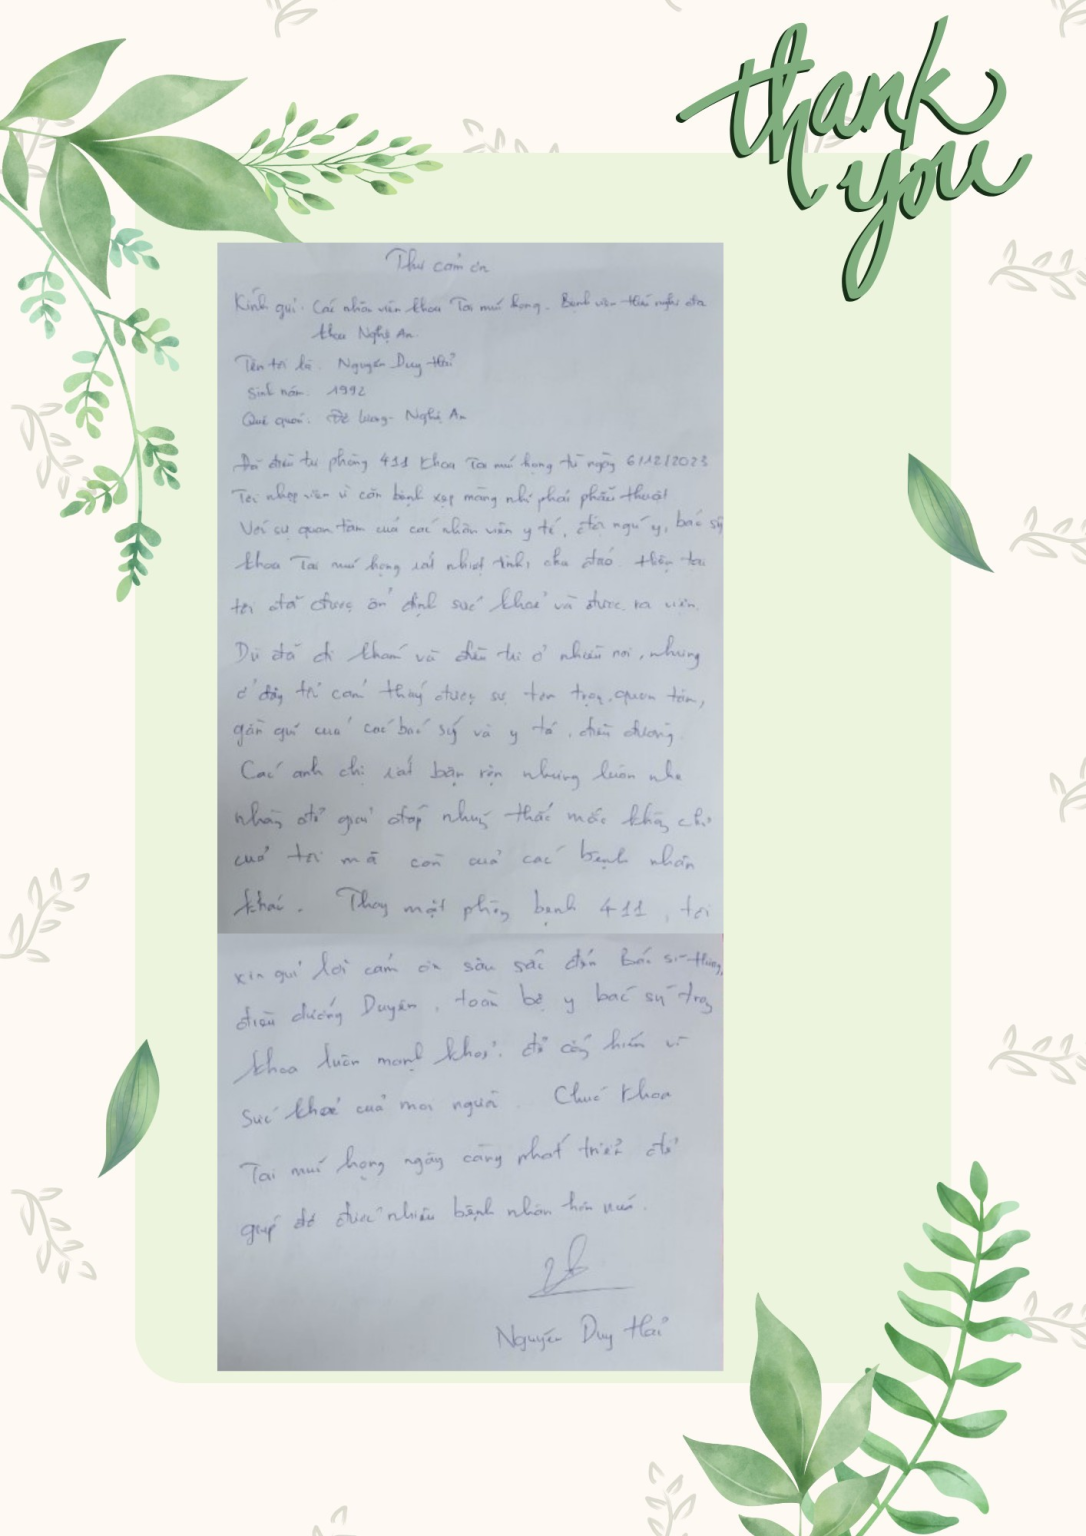 thank
you
Thư cảm ơn
Kính gửi: Các nhân viên khoa Tai mũi họng - Bệnh viện Hữu nghị đa
khoa Nghệ An
Tên tôi là: Nguyễn Duy Hải
Sinh năm: 1992
Quê quán: Đô Lương - Nghệ An
Đã điều trị phòng 411 khoa Tai mũi họng từ ngày 6/12/2023
Tôi nhập viện vì căn bệnh xẹp màng nhĩ phải phẫu thuật
Với sự quan tâm của các nhân viên y tế, đội ngũ y, bác sỹ
khoa Tai mũi họng rất nhiệt tình, chu đáo. Hiện tại
tôi đã được ổn định sức khoẻ và được ra viện.
Dù đã đi khám và điều trị ở nhiều nơi, nhưng
ở đây tôi cảm thấy được sự tôn trọng, quan tâm,
gần gũi của các bác sỹ và y tá, điều dưỡng.
Các anh chị rất bận rộn nhưng luôn nhẹ
nhàng để giải đáp những thắc mắc không chỉ
của tôi mà còn của các bệnh nhân
khác. Thay mặt phòng bệnh 411, tôi
xin gửi lời cảm ơn sâu sắc đến Bác sĩ
điều dưỡng Duyên, toàn bộ y bác sỹ trong
khoa luôn mạnh khoẻ, để cống hiến vì
sức khoẻ của mọi người. Chúc khoa
Tai mũi họng ngày càng phát triển để
giúp đỡ được nhiều bệnh nhân hơn nữa.
Nguyễn Duy Hải